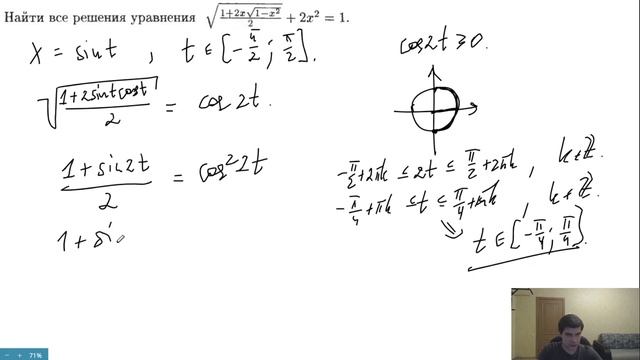 Найти все решения уравнения √((1+2x√(1−x²))/2) + 2x² = 1.
x = sin t , t ∈ [−π/2 ; π/2].
√((1+2 sin t cos t)/2) = cos 2t.
(1 + sin 2t)/2 = cos² 2t
1 + si
cos 2t ≥ 0.
−π/2 + 2πk ≤ 2t ≤ π/2 + 2πk , k ∈ ℤ.
−π/4 + πk ≤ t ≤ π/4 + πk , k ∈ ℤ.
⇓
t ∈ [−π/4 ; π/4].
− + 71%